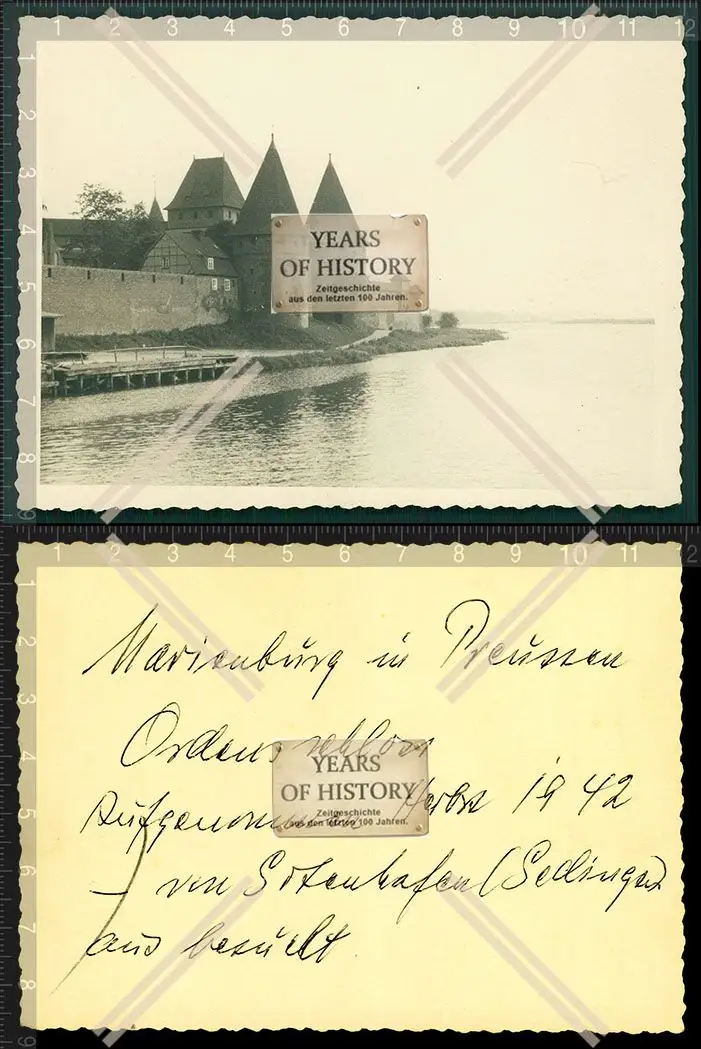 1 2 3 4 5 6 7 8 9 10 11 12
1
2
3
4
5
6
7
8
9
YEARS
OF HISTORY
Zeitgeschichte
aus den letzten 100 Jahren.
1 2 3 4 5 6 7 8 9 10 11 12
1
2
3
4
5
6
7
8
9
Marienburg in Preussen
Ordensschloss
YEARS
OF HISTORY
Zeitgeschichte
aus den letzten 100 Jahren.
Aufgenommen Herbst 1942
– von Gotenhafen (
aus besucht.